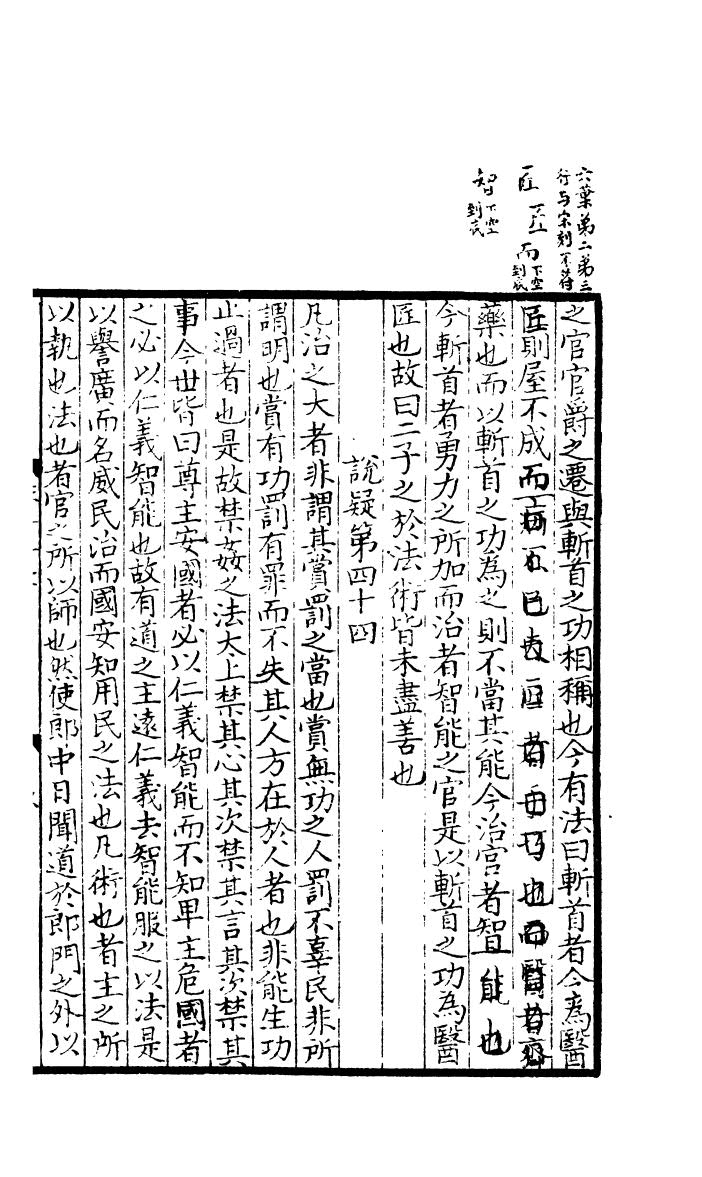 六葉第二第三
行与宋刻不符
匠 一匠 而下空到底
智下空到底
之官官爵之遷與斬首之功相稱也今有法曰斬首者令為醫
匠則屋不成而病不已夫匠者手巧也而醫者齊
藥也而以斬首之功為之則不當其能今治官者智能也
今斬首者勇力之所加而治者智能之官是以斬首之功為醫
匠也故曰二子之於法術皆未盡善也
說疑第四十四
凡治之大者非謂其賞罰之當也賞無功之人罰不辜民非所
謂明也賞有功罰有罪而不失其人方在於人者也非能生功
止過者也是故禁姦之法太上禁其心其次禁其言其次禁其
事今世皆曰尊主安國者必以仁義智能而不知卑主危國者
之必以仁義智能也故有道之主遠仁義去智能服之以法是
以譽廣而名威民治而國安知用民之法也凡術也者主之所
以執也法也者官之所以師也然使郎中日聞道於郎門之外以